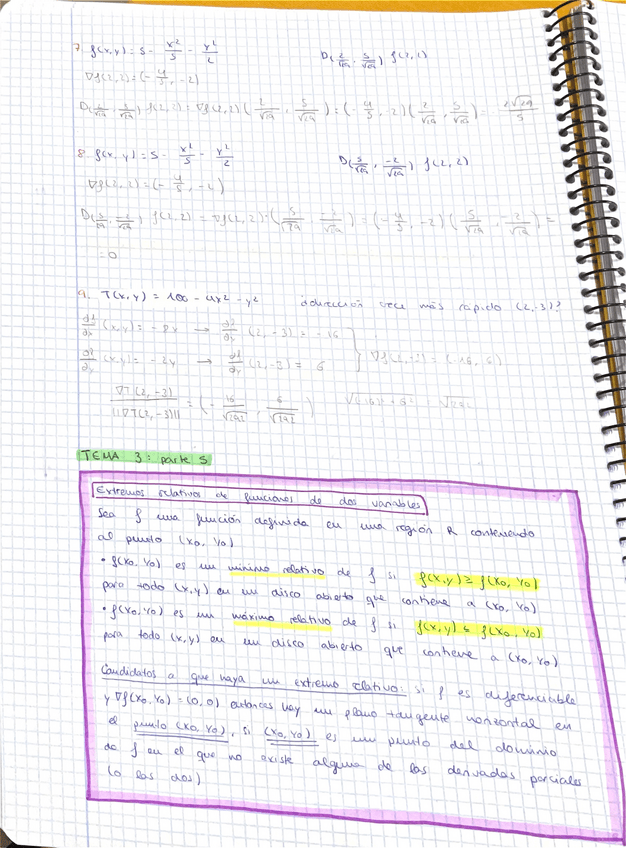 7. f(x,y) = 5 - x²/5 - y²/2 D(2/√29, 5/√29) f(2,2)
∇f(2,2) = (-4/5, -2)
D(2/√29, 5/√29) f(2,2) = ∇f(2,2)(2/√29, 5/√29) = (-4/5, -2)(2/√29, 5/√29) = -2√29/5
8. f(x,y) = 5 - x²/5 - y²/2 D(5/√29, -2/√29) f(2,2)
∇f(2,2) = (-4/5, -2)
D(5/√29, -2/√29) f(2,2) = ∇f(2,2)·(5/√29, -2/√29) = (-4/5, -2)(5/√29, -2/√29) =
= 0
9. T(x,y) = 100 - 4x² - y² dirección crece más rápido (2,-3)?
(x,y) = -8x → (2,-3) = -16
(x,y) = -2y → (2,-3) = 6 } ∇f(2,-3) = (-16, 6)
∇T(2,-3)/||∇T(2,-3)|| = (-16/√292, 6/√292) √292
TEMA 3: parte 5
Extremos relativos de funciones de dos variables
Sea f una función definida en una región R conteniendo
al punto (x0, y0)
• f(x0, y0) es un mínimo relativo de f si f(x,y) ≥ f(x0, y0)
para todo (x,y) en un disco abierto que contiene a (x0, y0)
• f(x0, y0) es un máximo relativo de f si f(x,y) ≤ f(x0, y0)
para todo (x,y) en un disco abierto que contiene a (x0, y0)
Candidatos a que haya un extremo relativo: si f es diferenciable
y ∇f(x0, y0) = (0,0) entonces hay un plano tangente horizontal en
el punto (x0, y0), si (x0, y0) es un punto del dominio
de f en el que no existe alguna de las derivadas parciales
(o las dos)